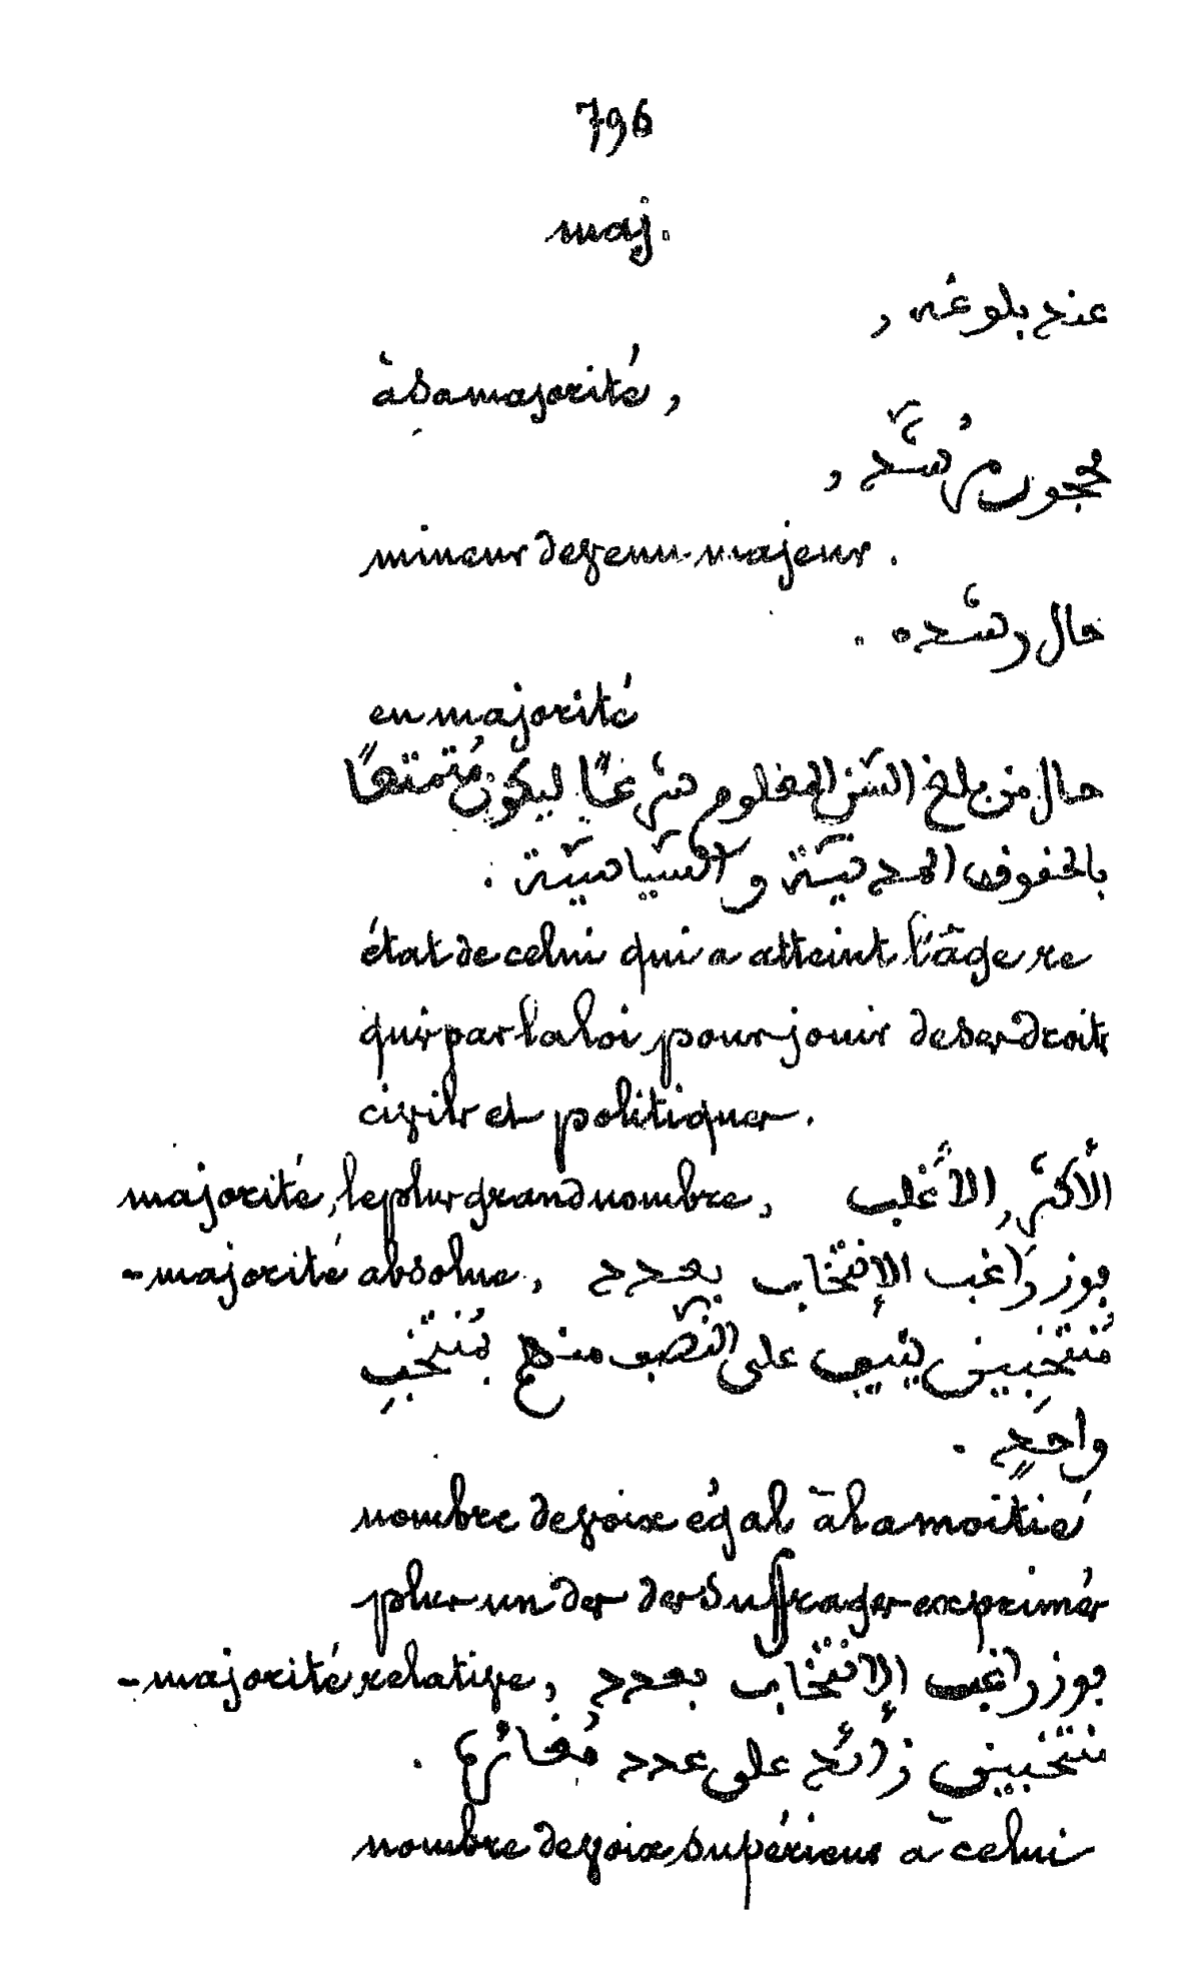 796
maj.
عند بلوغه ,
à sa majorité,
محجور مرشّد ,
mineur devenu majeur.
حال رشده .
en majorité
حال من بلغ السّن المعلوم شرعًا ليكون مُتمتعًا
بالحقوق المدنيّة و السّياسيّة .
état de celui qui a atteint l'âge re
quis par la loi pour jouir de ses droits
civils et politiques.
majorité, le plus grand nombre, الأكثر, الأغلب
- majorité absolue, فوز راغب الإنتخاب بعدد
مُنتخِبين ينيف على النّصف منهم بمُنتخِبٍ
واحدٍ .
nombre de voix égal à la moitié
plus un des des suffrages exprimés
- majorité relative, فوز راغب الإنتخاب بعدد
منتخبين زائد على عدد
nombre de voix supérieur à celui